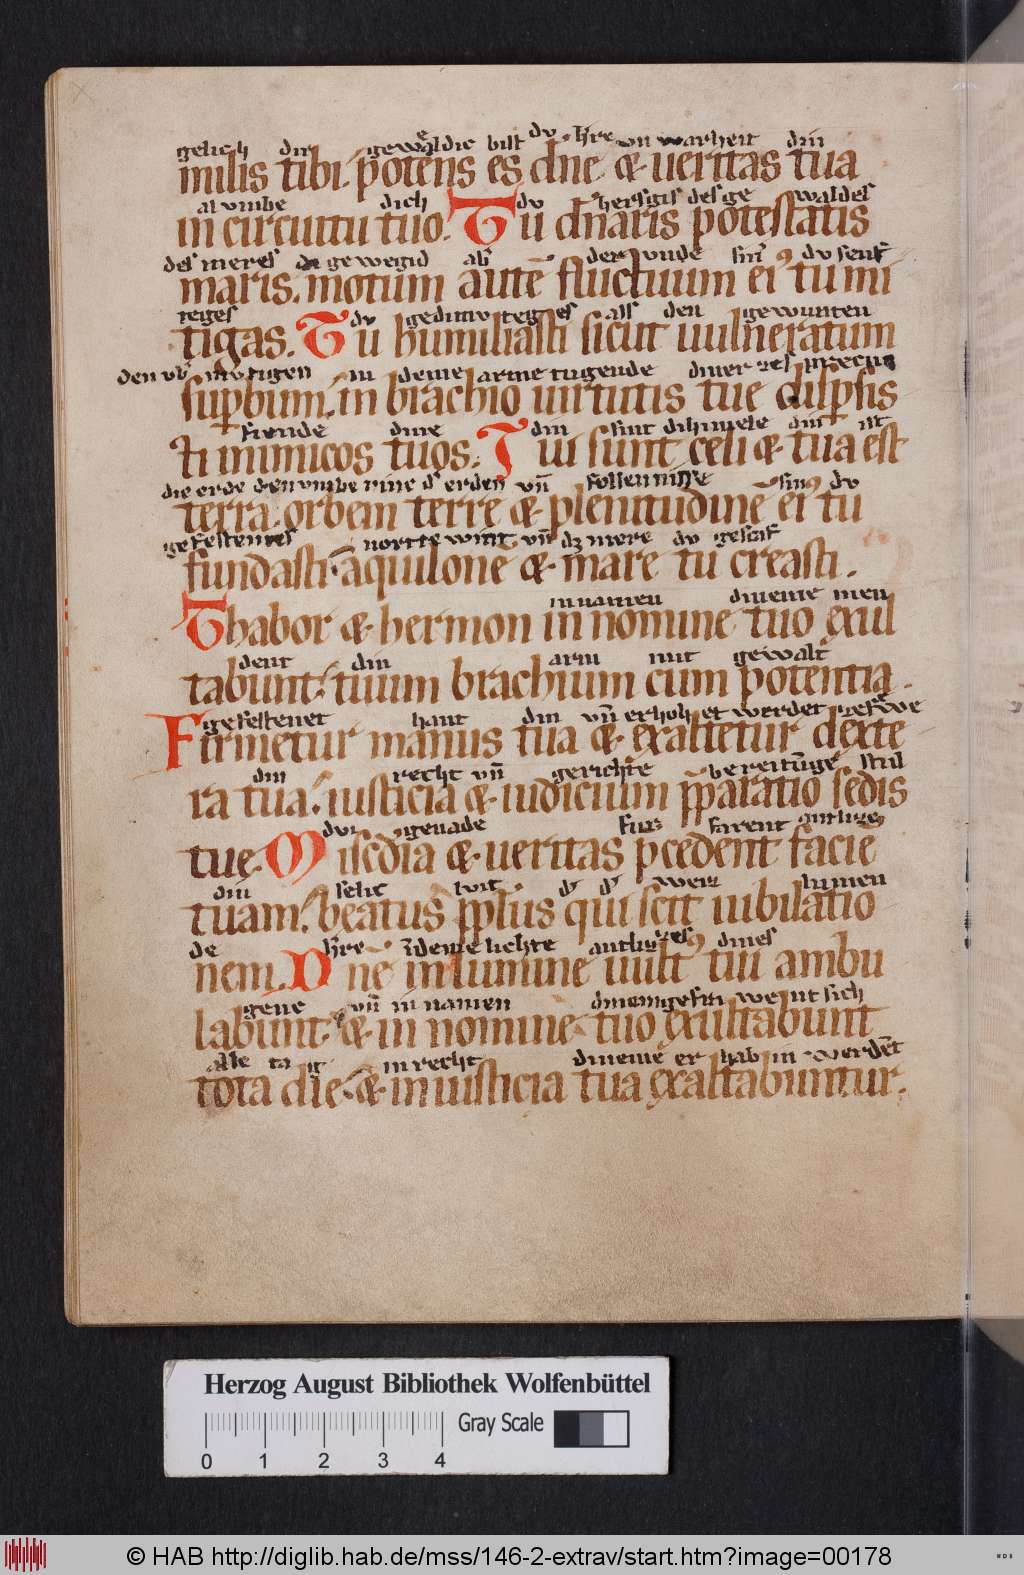 gelich dir gewaldic bist du h're vn warheit din
milis tibi. potens es dn̄e & ueritas tua
al vmbe dich du hersgis des ge waldes
in circuitu tuo. Tu dn̄aris potestatis
des meres gewegid ab' der vnde sin' du senf
maris. motum autē fluctuum ei' tu mi
teges du gedimvteges als den gewunten
tigas. Tu humiliasti sicut uulneratum
den vb' in deine arme tugende diner
sup̱bum. in brachio uirtutis tue disp̱sis
fiende dine din sint di himele din ist
ti inimicos tuos. Tui sunt celi & tua est
die erde den vmbe rine d' erden vn̄ follennisse sin' du
terra. orbem terrę & plenitudinē ei' tu
gefestentes nortte wint vn̄ dz mere du gescaf
fundasti. aquilonē & mare tu creasti.
in namen dineme men
Thabor & hermon in nomine tuo exul
dent din arm mit gewalt
tabunt. tuum brachium cum potentia.
gefestenet hant din vn̄ erhohet werdet
Firmetur manus tua & exaltetur dexte
din recht vn̄ gerichte bereitūge stul
ra tua. iusticia & iudicium p̄paratio sedis
genade fur farent antlize
tuę. Misc̄dia & ueritas p̄cedent faciē
din selic lvit d' d' weiz lumen
tuam. beatus pp̄lus qui scit iubilatio
de h're deme lichte antlizzes dines
nem. Dn̄e in lumine uult' tui ambu
gene vn̄ in namen
labunt & in nomine tuo exultabunt
Alle ta g in recht dineme er hab in werdēt
tota die. & in iusticia tua exaltabuntur.
Herzog August Bibliothek Wolfenbüttel
Gray Scale
0 1 2 3 4
© HAB http://diglib.hab.de/mss/146-2-extrav/start.htm?image=00178